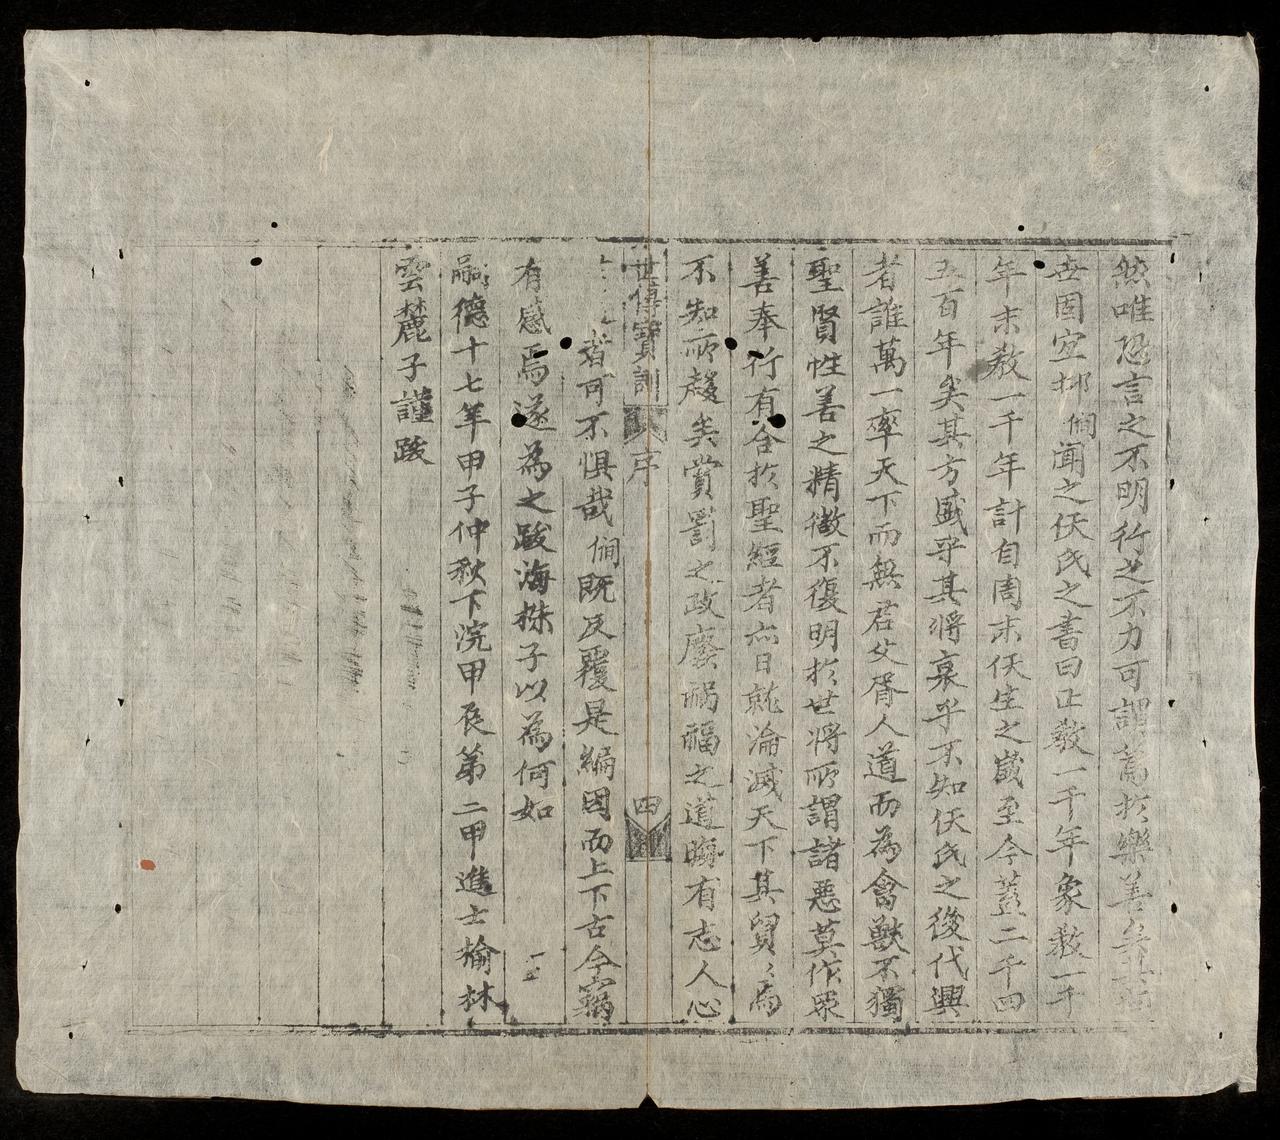 然唯恐言之不明行之不力可謂篤於樂善矣
世固宜抑僩聞之佚氏之書曰正教一千年象教一千
年末教一千年計自周末佚生之歲至今蓋二千四
五百年矣其方盛乎其將衰乎不知佚氏之後代興
者誰萬一率天下而無君父胥人道而為禽獸不獨
聖賢性善之精微不復明於世將所謂諸惡莫作眾
善奉行有合於聖經者亦日就淪滅天下其貿々焉
不知所趨矣賞罰之政廢禍福之道晦有志人心
世傳寶訓 序 四
者可不惧哉僩既反覆是編因而上下古今竊
有感焉遂為之跋海株子以為何如
嗣德十七年甲子仲秋下浣甲辰第二甲進士榆林
雲麓子謹跋